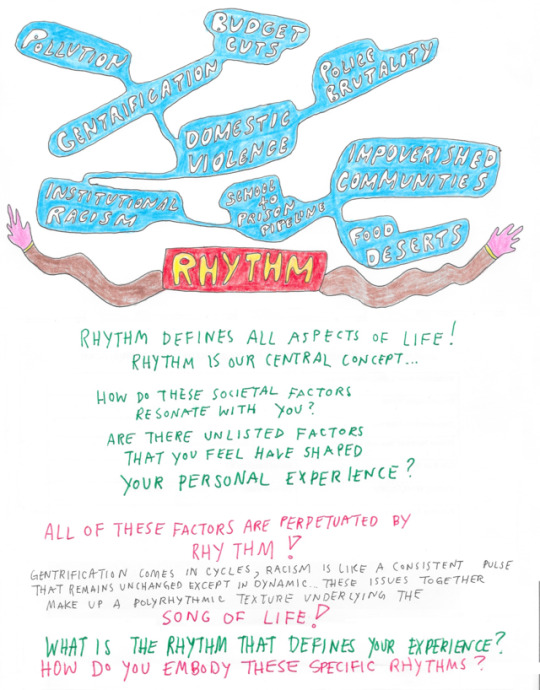 POLLUTION
BUDGET
CUTS
GENTRIFICATION
POLICE
BRUTALITY
DOMESTIC
VIOLENCE
IMPOVERISHED
COMMUNITIES
INSTITUTIONAL
RACISM
SCHOOL
to
PRISON
PIPELINE
FOOD
DESERTS
RHYTHM
RHYTHM DEFINES ALL ASPECTS OF LIFE!
RHYTHM IS OUR CENTRAL CONCEPT...
HOW DO THESE SOCIETAL FACTORS
RESONATE WITH YOU?
ARE THERE UNLISTED FACTORS
THAT YOU FEEL HAVE SHAPED
YOUR PERSONAL EXPERIENCE?
ALL OF THESE FACTORS ARE PERPETUATED BY
RHYTHM!
GENTRIFICATION COMES IN CYCLES, RACISM IS LIKE A CONSISTENT PULSE
THAT REMAINS UNCHANGED EXCEPT IN DYNAMIC... THESE ISSUES TOGETHER
MAKE UP A POLYRHYTHMIC TEXTURE UNDERLYING THE
SONG OF LIFE!
WHAT IS THE RHYTHM THAT DEFINES YOUR EXPERIENCE?
HOW DO YOU EMBODY THESE SPECIFIC RHYTHMS?